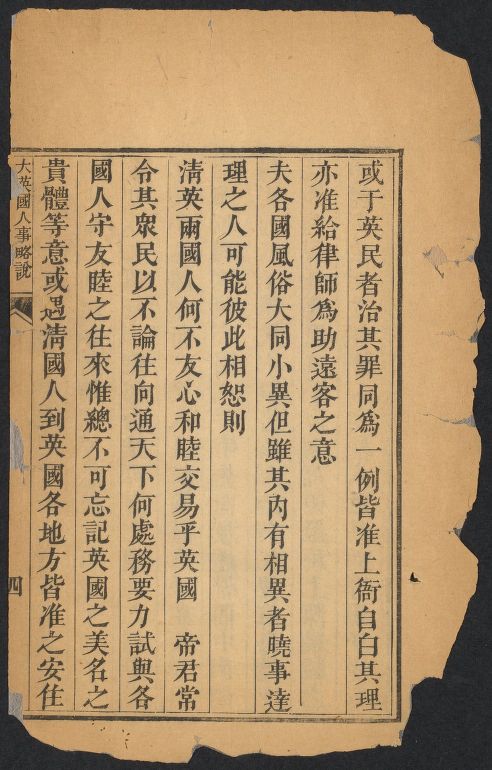 或于英民者治其罪同爲一例皆准上衙自白其理
亦准給律師爲助遠客之意
夫各國風俗大同小異但雖其內有相異者曉事達
理之人可能彼此相恕則
淸英兩國人何不友心和睦交易乎英國　帝君常
令其衆民以不論往向通天下何處務要力試與各
國人守友睦之往來惟總不可忘記英國之美名之
貴體等意或遇淸國人到英國各地方皆准之安住
大英國人事略說
四